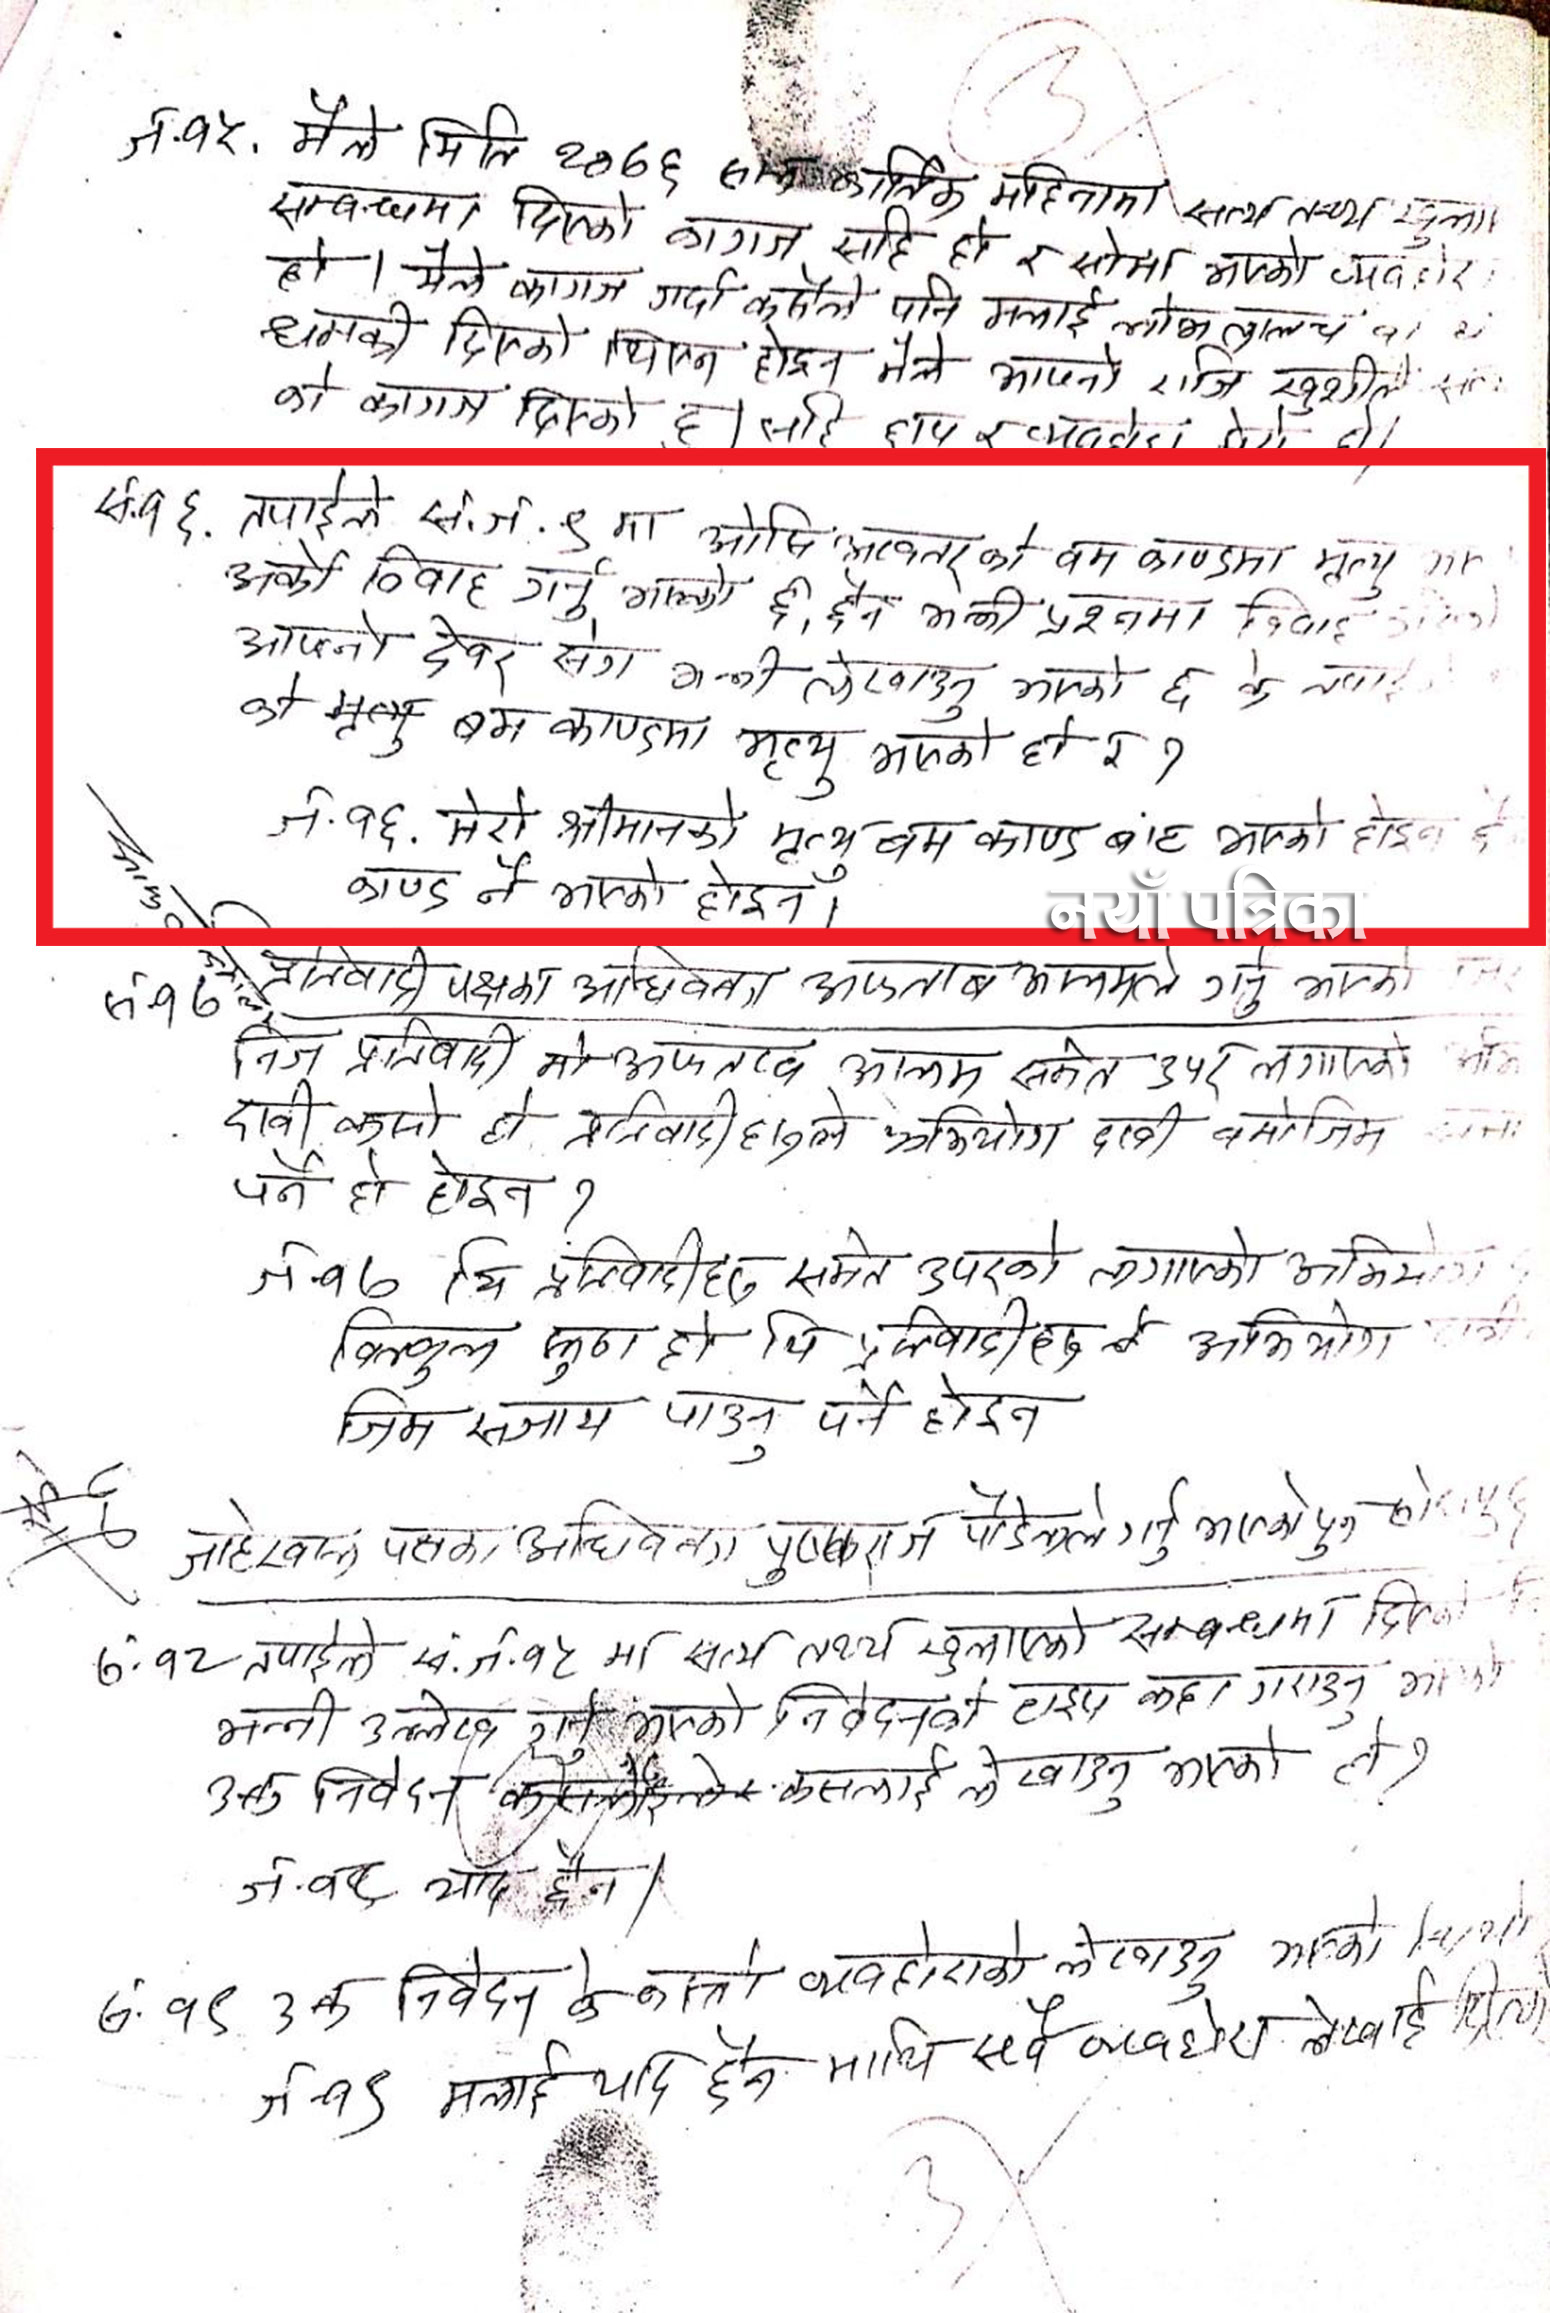 जं.१५. मैले मिति २०७६ साल कार्तिक महिनामा सत्य तथ्य खुलाई
सम्बन्धमा दिएको कागज सहि हो र सोमा भएको व्यवहोरा
हो । मैले कागज गर्दा कसैले पनि मलाई लोभ लालच वा
धम्की दिएको थिएन होइन मैले आफ्नो राजि खुशीले
को कागज दिएको छु । सहि छाप र व्यवहोरा मेरो हो ।
सं.१६. तपाईले सं.जं.९ मा ओसि अख्तर को बम काण्डमा मृत्यु
अर्को विवाह गर्नु भएको छ, छैन भन्नी प्रश्नमा विवाह
आफ्नो देवर संग भन्नी लेखाउनु भएको छ के
को मृत्यु बम काण्डमा मृत्यु भएको हो र ?
जं.१६. मेरो श्रीमानको मृत्यु बम काण्ड बाट भएको होइन
काण्ड नै भएको होइन ।
नयाँ पत्रिका
प्रतिवादी पक्षका अधिवक्ता आफताब आलमले गर्नु भएको
सं.१७ निज प्रतिवादी मो. आफताब आलम समेत उपर लगाएको
दावी कस्तो हो प्रतिवादीहरुले अभियोग दावी बमोजिम
पर्ने हो होइन ?
जं.१७ यि प्रतिवादीहरु समेत उपरको लगाएको अभियोग
बिल्कुल झुठा हो यि प्रतिवादीहरु ले अभियोग
जिम सजाय पाउनु पर्ने होइन
जाहेरवाला पक्षका अधिवक्ता पुष्पराज पौडेलले गर्नु भएको पुन
सं.१८ तपाईले सं.जं.१५ मा सत्य तथ्य खुलाएको सम्बन्धमा दिएको
भन्नी उल्लेख गर्नु भएको निवेदनको टाइप कहा गराउनु भएको
उक्त निवेदन कसलाई लेखाउनु भएको हो ?
जं.१८ याद छैन ।
सं.१९ उक्त निवेदन के कस्तो व्यवहोराको लेखाउनु भएको थियो
जं.१९ मलाई यादि छैन माथि सबै व्यवहोरा लेखाई